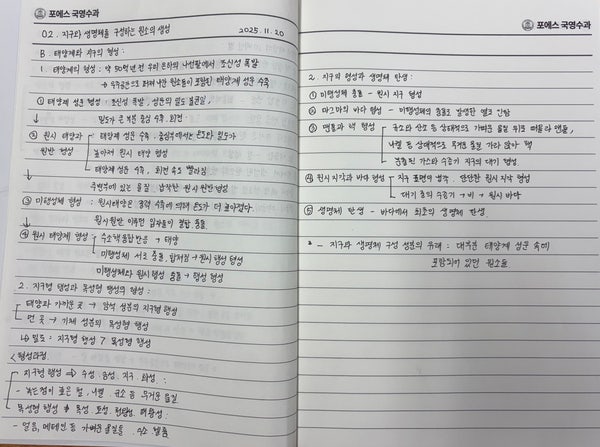 포에스 국영수과
02. 지구와 생명체를 구성하는 원소의 생성
2025. 11. 20
B. 태양계와 지구의 형성 :
1. 태양계의 형성 : 약 50억년 전 우리 은하의 나선팔에서 초신성 폭발
→ 우주공간으로 퍼져나간 원소들이 포함된 태양계 성운 수축
① 태양계 성운 형성 : 초신성 폭발, 성운의 밀도 불균일,
↓ 밀도가 큰 부분 중심 수축, 회전
② 원시 태양과 원반 형성
태양계 성운 수축, 중심부에서는 온도와 밀도가
높아져 원시 태양 형성
태양계 성운 수축, 회전 속도 빨라짐
↓ 주변부에 있는 물질, 납작한 원시 원반 형성
③ 미행성체 형성 : 원시태양은 중력 수축에 의해 온도가 더 높아졌다.
↓ 원시원반 이루던 입자들이 결합, 충돌
④ 원시 태양계 형성 : 수소핵융합반응 → 태양
미행성체 서로 충돌, 합쳐짐 → 원시 행성 형성
미행성체와 원시행성 충돌 → 행성 형성
2. 지구형 행성과 목성형 행성의 형성 :
태양과 가까운 곳 → 암석 성분의 지구형 행성
먼 곳 → 기체 성분의 목성형 행성
↳ 밀도 : 지구형 행성 > 목성형 행성
<형성과정
지구형 행성 ⇒ 수성. 금성. 지구. 화성.
- 녹는점이 높은 철, 니켈, 규소 등 무거운 물질
목성형 행성 ⇒ 목성. 토성. 천왕성. 해왕성.
- 얼음, 메테인 등 가벼운 물질들. 수소 헬륨.
포에스 국영수과
2. 지구의 형성과 생명체 탄생 :
① 미행성체 충돌 - 원시 지구 형성
② 마그마의 바다 형성 - 미행성체의 충돌로 발생한 열로 인함
③ 맨틀과 핵 형성
규소와 산소 등 상대적으로 가벼운 물질 위로 떠올라 맨틀,
니켈 등 상대적으로 무거운 물질 가라 앉아 핵
분출된 가스와 수증기 지구의 대기 형성
④ 원시 지각과 바다 형성
지구 표면이 식어, 단단한 원시 지각 형성
대기 중의 수증기 → 비 → 원시 바다
⑤ 생명체 탄생 - 바다에서 최초의 생명체 탄생
- 지구와 생명체 구성 성분의 유래 : 대부분 태양계 성운 속에
포함되어 있던 원소들